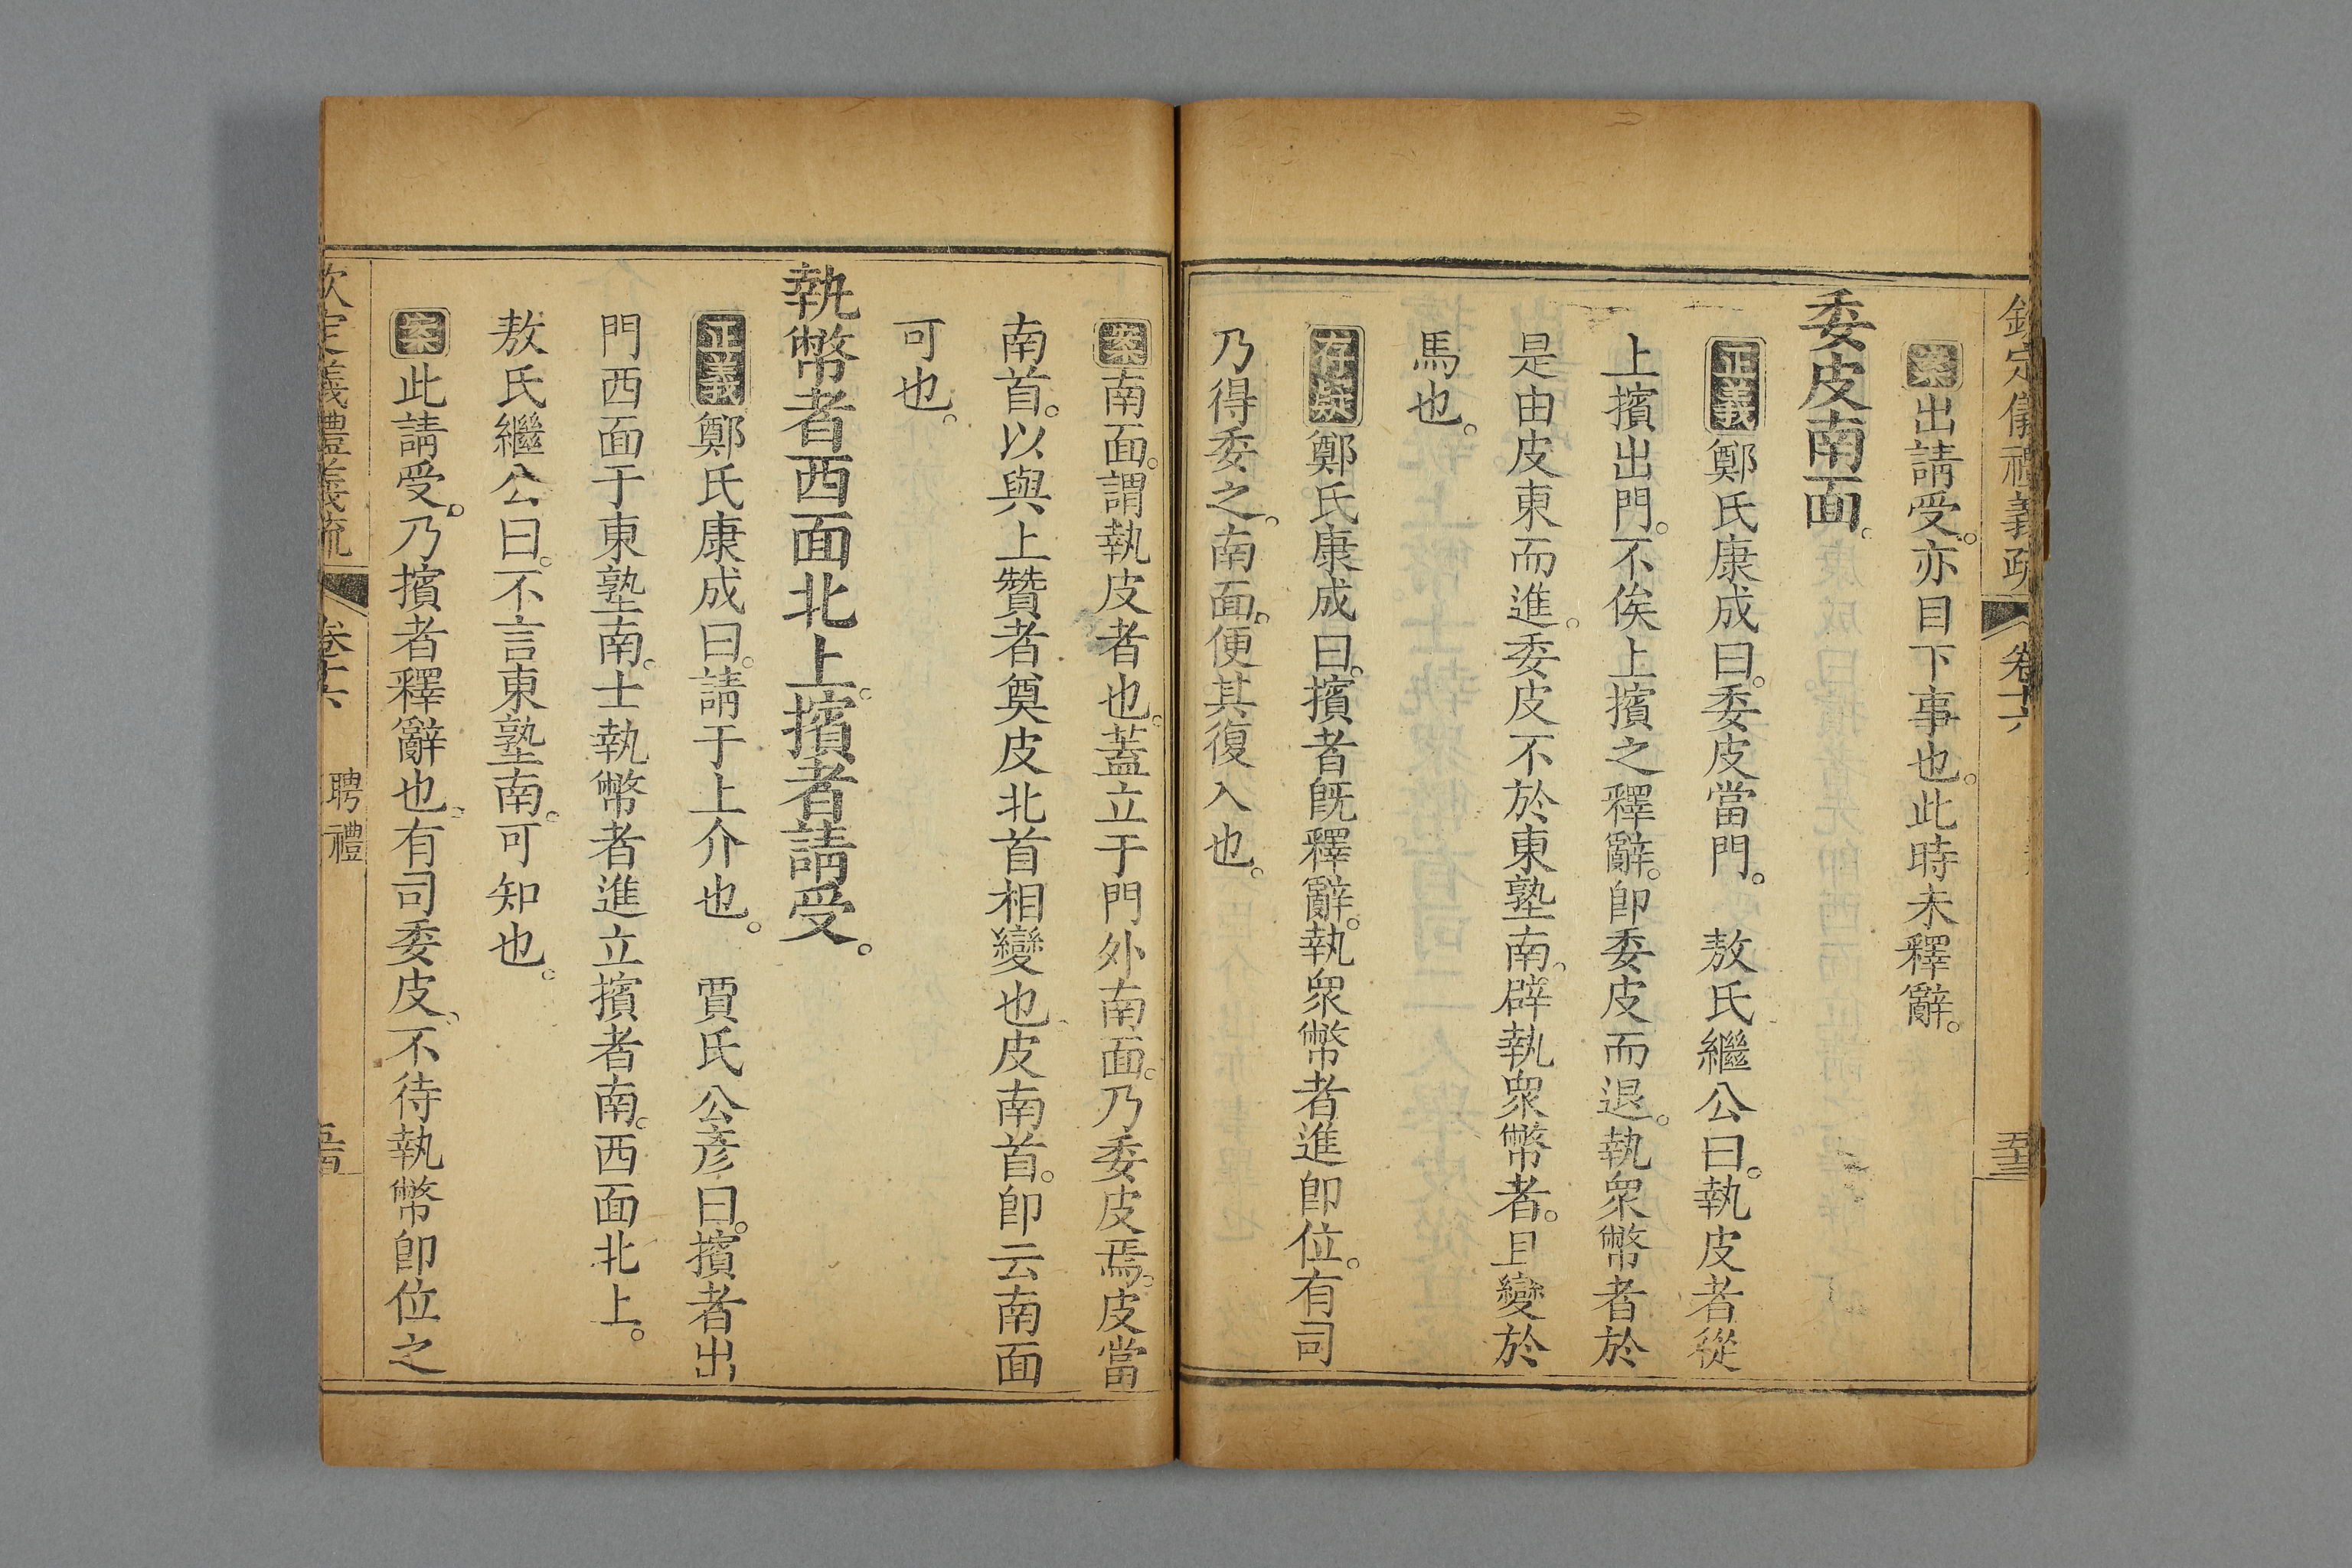 欽定儀禮義疏 卷十六 五十三
案出請受。亦目下事也。此時未釋辭。
委皮南面。
正義鄭氏康成曰。委皮當門。 敖氏繼公曰。執皮者從
上擯出門。不俟上擯之釋辭。卽委皮而退。執衆幣者於
是由皮東而進。委皮不於東塾南。辟執衆幣者。且變於
馬也。
存疑鄭氏康成曰。擯者旣釋辭。執衆幣者進卽位。有司
乃得委之。南面。便其復入也。
案南面。謂執皮者也。蓋立于門外南面。乃委皮焉。皮當
南首。以與上贊者奠皮北首相變也。皮南首。卽云南面
可也。
執幣者西面北上。擯者請受。
正義鄭氏康成曰。請于上介也。 賈氏公彥曰。擯者出
門西面于東塾南。士執幣者進立擯者南。西面北上。
敖氏繼公曰。不言東塾南。可知也。
案此請受。乃擯者釋辭也。有司委皮。不待執幣卽位之
欽定義禮義疏 卷十六 聘禮